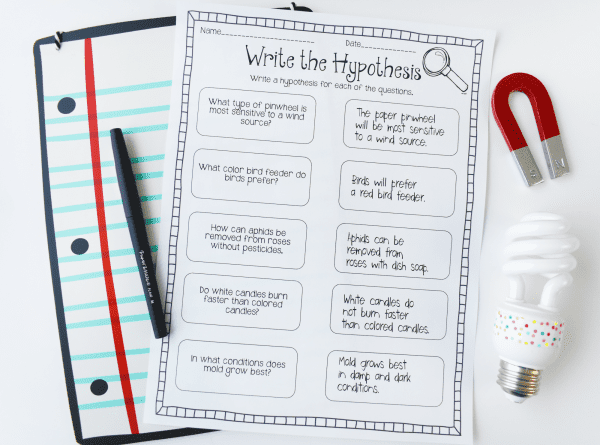 Name
Date
Write the Hypothesis
Write a hypothesis for each of the questions.
What type of pinwheel is
most sensitive to a wind
source?
The paper pinwheel
will be most sensitive
to a wind source.
What color bird feeder do
birds prefer?
Birds will prefer
a red bird feeder.
How can aphids be
removed from roses
without pesticides.
Aphids can be
removed from
roses with dish soap.
Do white candles burn
faster than colored
candles?
White candles do
not burn faster
than colored candles.
In what conditions does
mold grow best?
Mold grows best
in damp and dark
conditions.